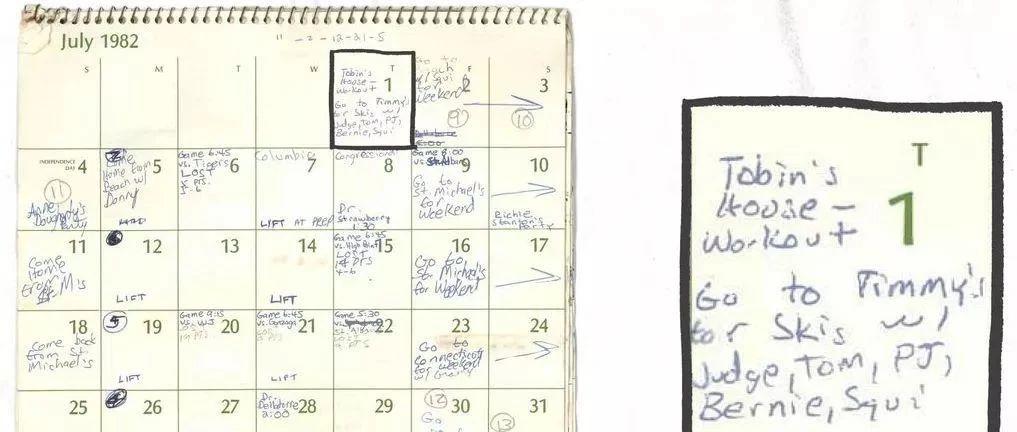 July 1982
S M T W T F S
Tobin's
House -
Workout
1
Go to Timmy's
for Skis w/
Judge, Tom, PJ,
Bernie, Squi
2
for
Weekend
9
3
10
INDEPENDENCE
DAY 4
11
Anne
Dougherty's
Party
5
Come
Home from
Beach w/
Donny
Game 6:45
vs. Tigers 6
LOST
5 pts.
Columbia 7
LIFT AT PREP
8
Dr.
Strawberry
1:30
Game 8:00
9
Go to
St. Michael's
for
Weekend
10
Richie
Stanton's
Party
11
Come
Home
from
St. M's
12
LIFT
13
14
LIFT
Game 6:45
15
LOST
14 PTS
4-6
16
Go to
St. Michael's
for Weekend
17
18
Come back
from St.
Michael's
5 19
LIFT
Game 9:15
20
Game 6:45
vs. Gonzaga
21
LIFT
Game 5:30
22
23
Go to
Connecticut
for weekend
24
25
26
27
Dr.
28
2:00
29
12
30
Go
31
13
T
1
Tobin's
House -
Workout
Go to Timmy's
for Skis w/
Judge, Tom, PJ,
Bernie, Squi